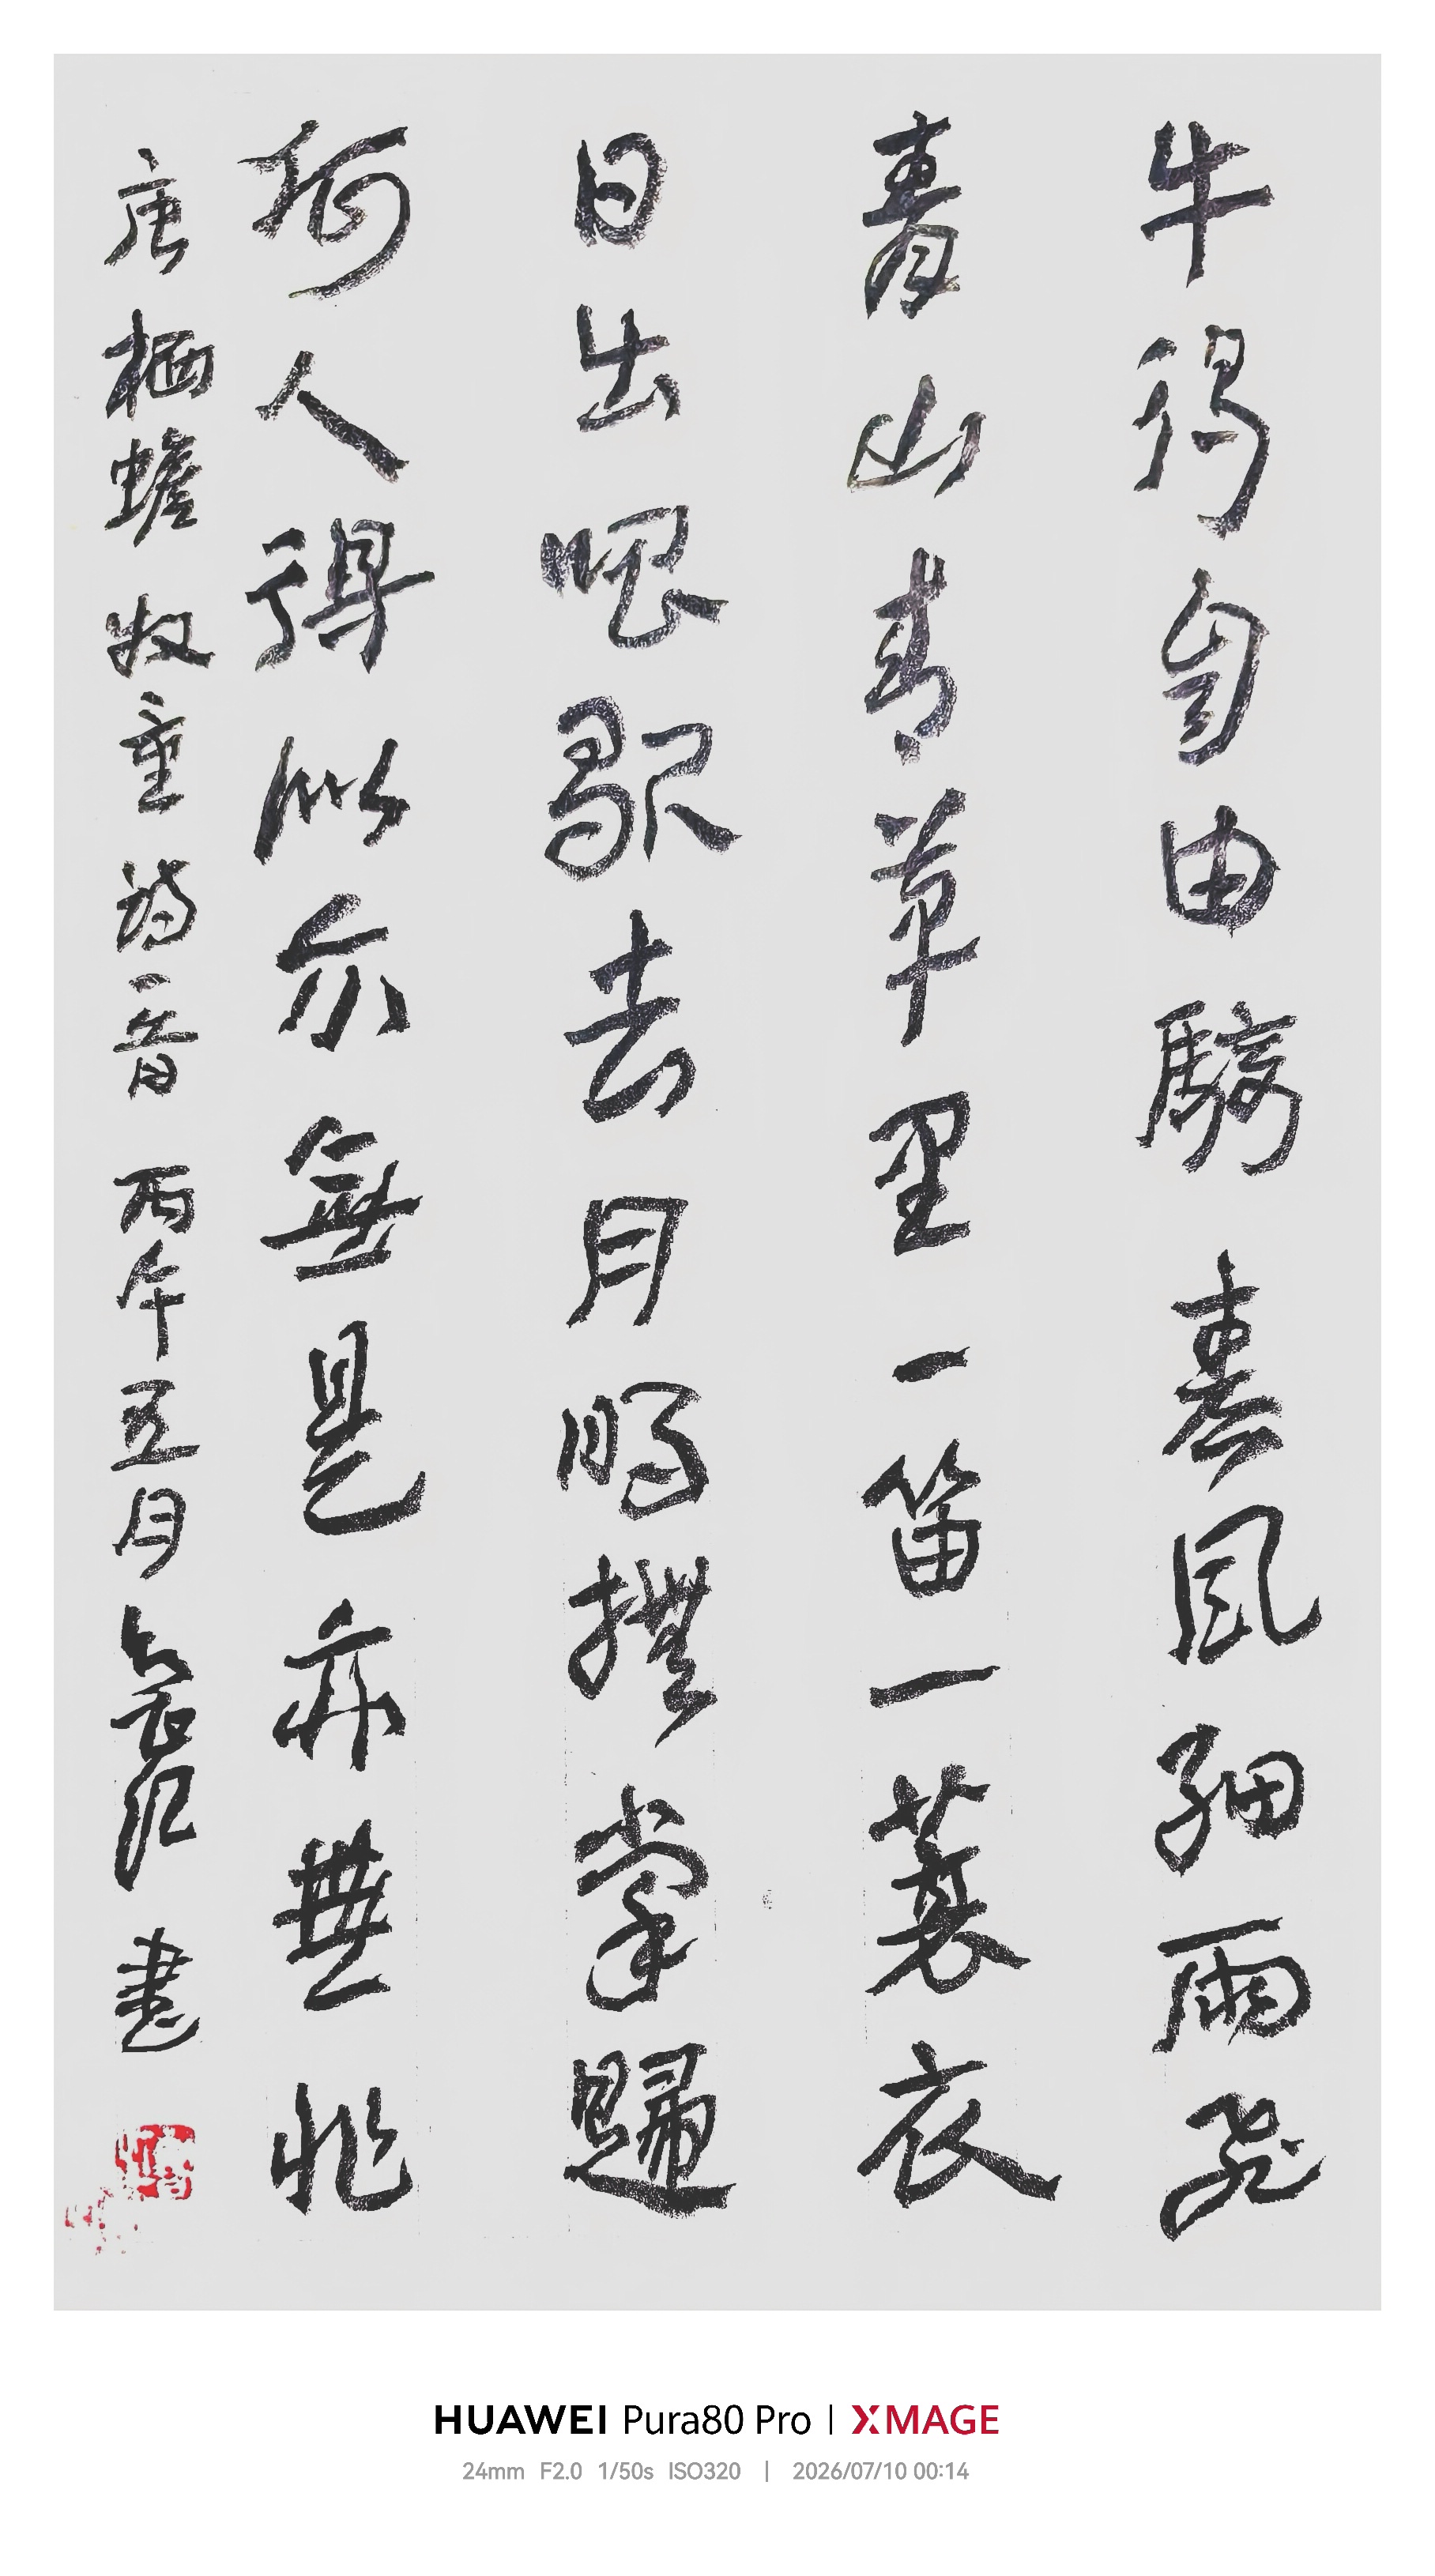 牛得自由騎春風細雨飛
青山青草里一笛一蓑衣
日出唱歌去月明撫掌歸
何人得似尔無是亦無非
唐栖蟾牧童詩一首丙午五月書
HUAWEI Pura80 Pro | XMAGE
24mm F2.0 1/50s ISO320 | 2026/07/10 00:14